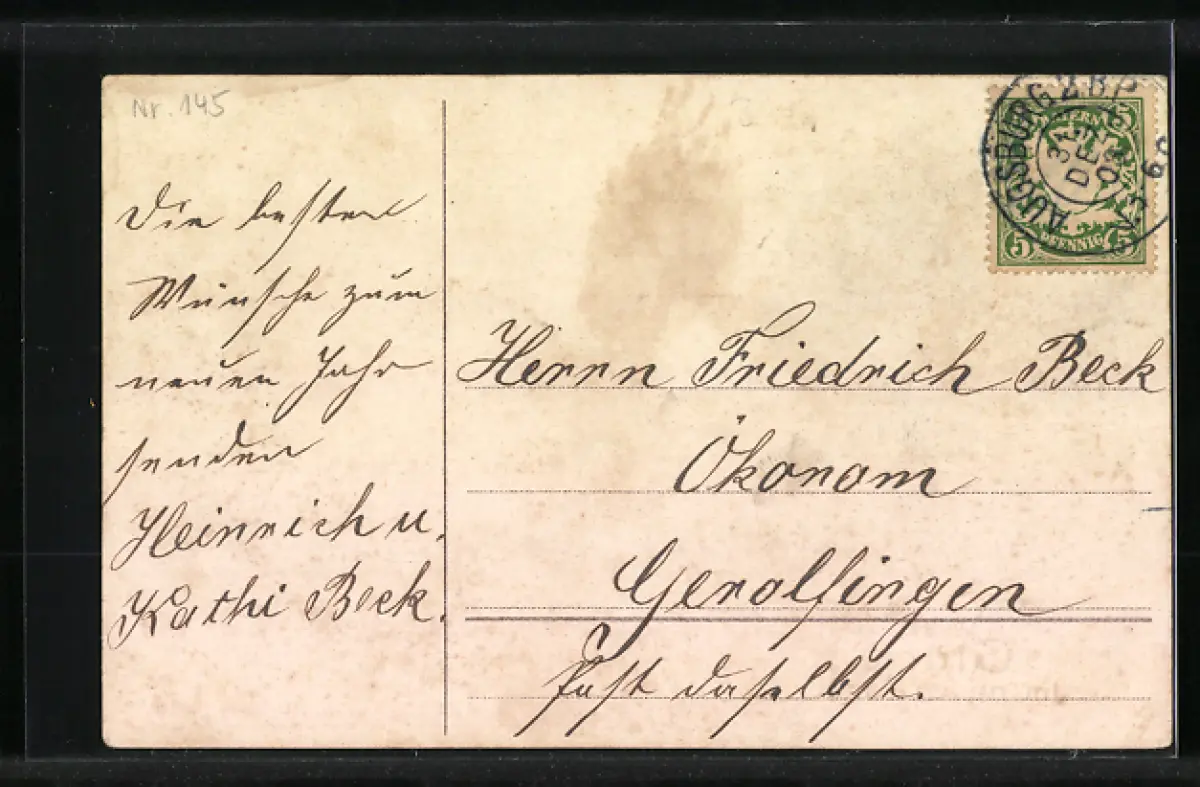 Nr. 145
Die besten
Wünsche zum
neuen Jahr
senden
Heinrich u.
Kathi Beck.
AUGSBURG 2 B.P.
DEZ
5 5
PFENNIG
Herrn Friedrich Beck
Ökonom
Gerolfingen
Post daselbst.